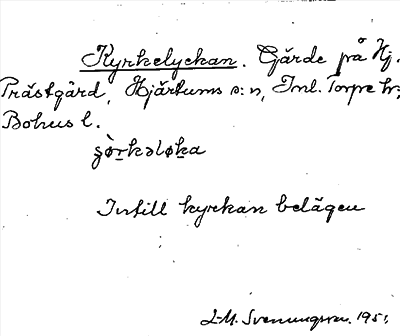 Kyrkelyckan. Gärde på Hj.
Prästgård, Hjärtums s:n, Inl. Torpe hd;
Bohus l.
Intill kyrkan belägen
J-M. Svenungsson. 1951.